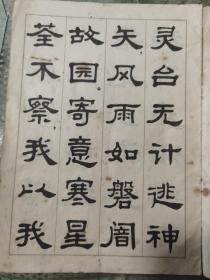 灵台无计逃神
矢风雨如磐闇
故园寄意寒星
荃不察我以我